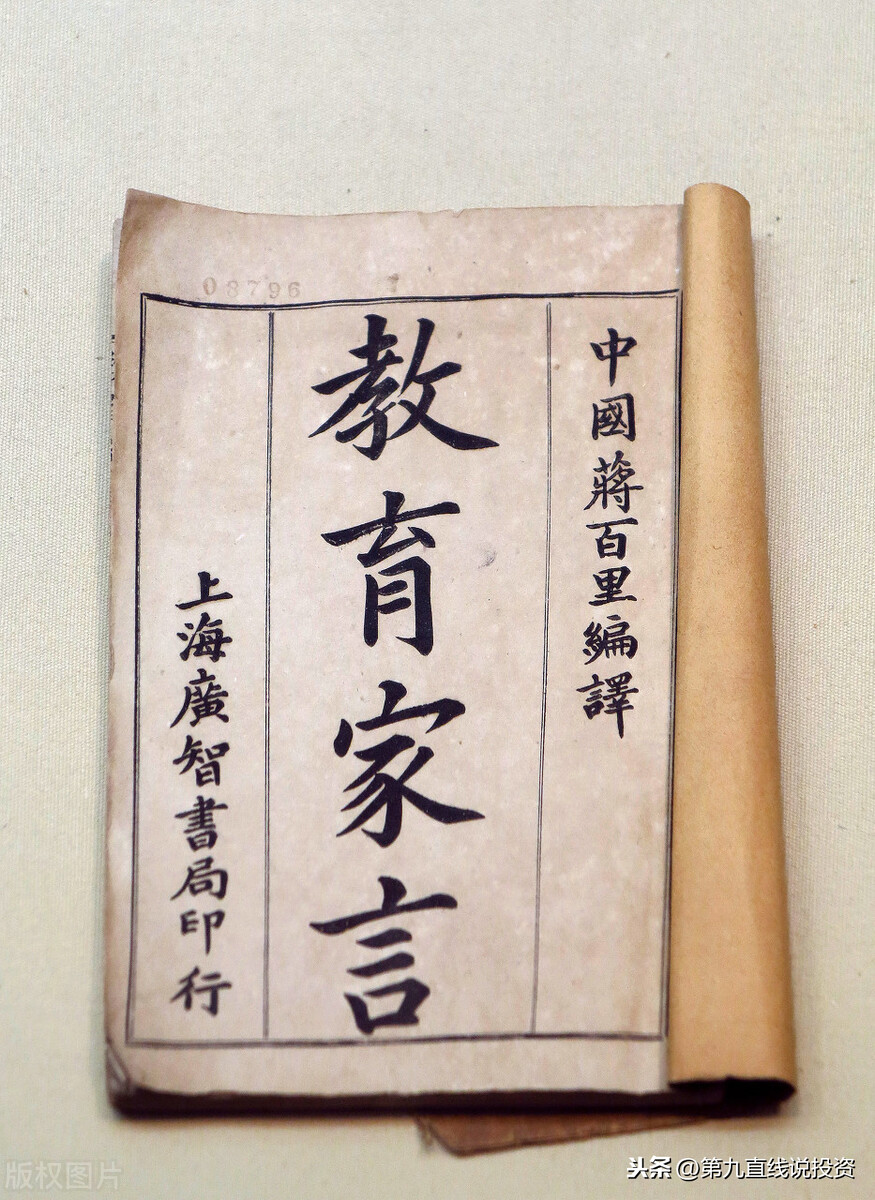 08796
中國蔣百里編譯
教育家言
上海廣智書局印行
版权图片
头条 @第九直线说投资